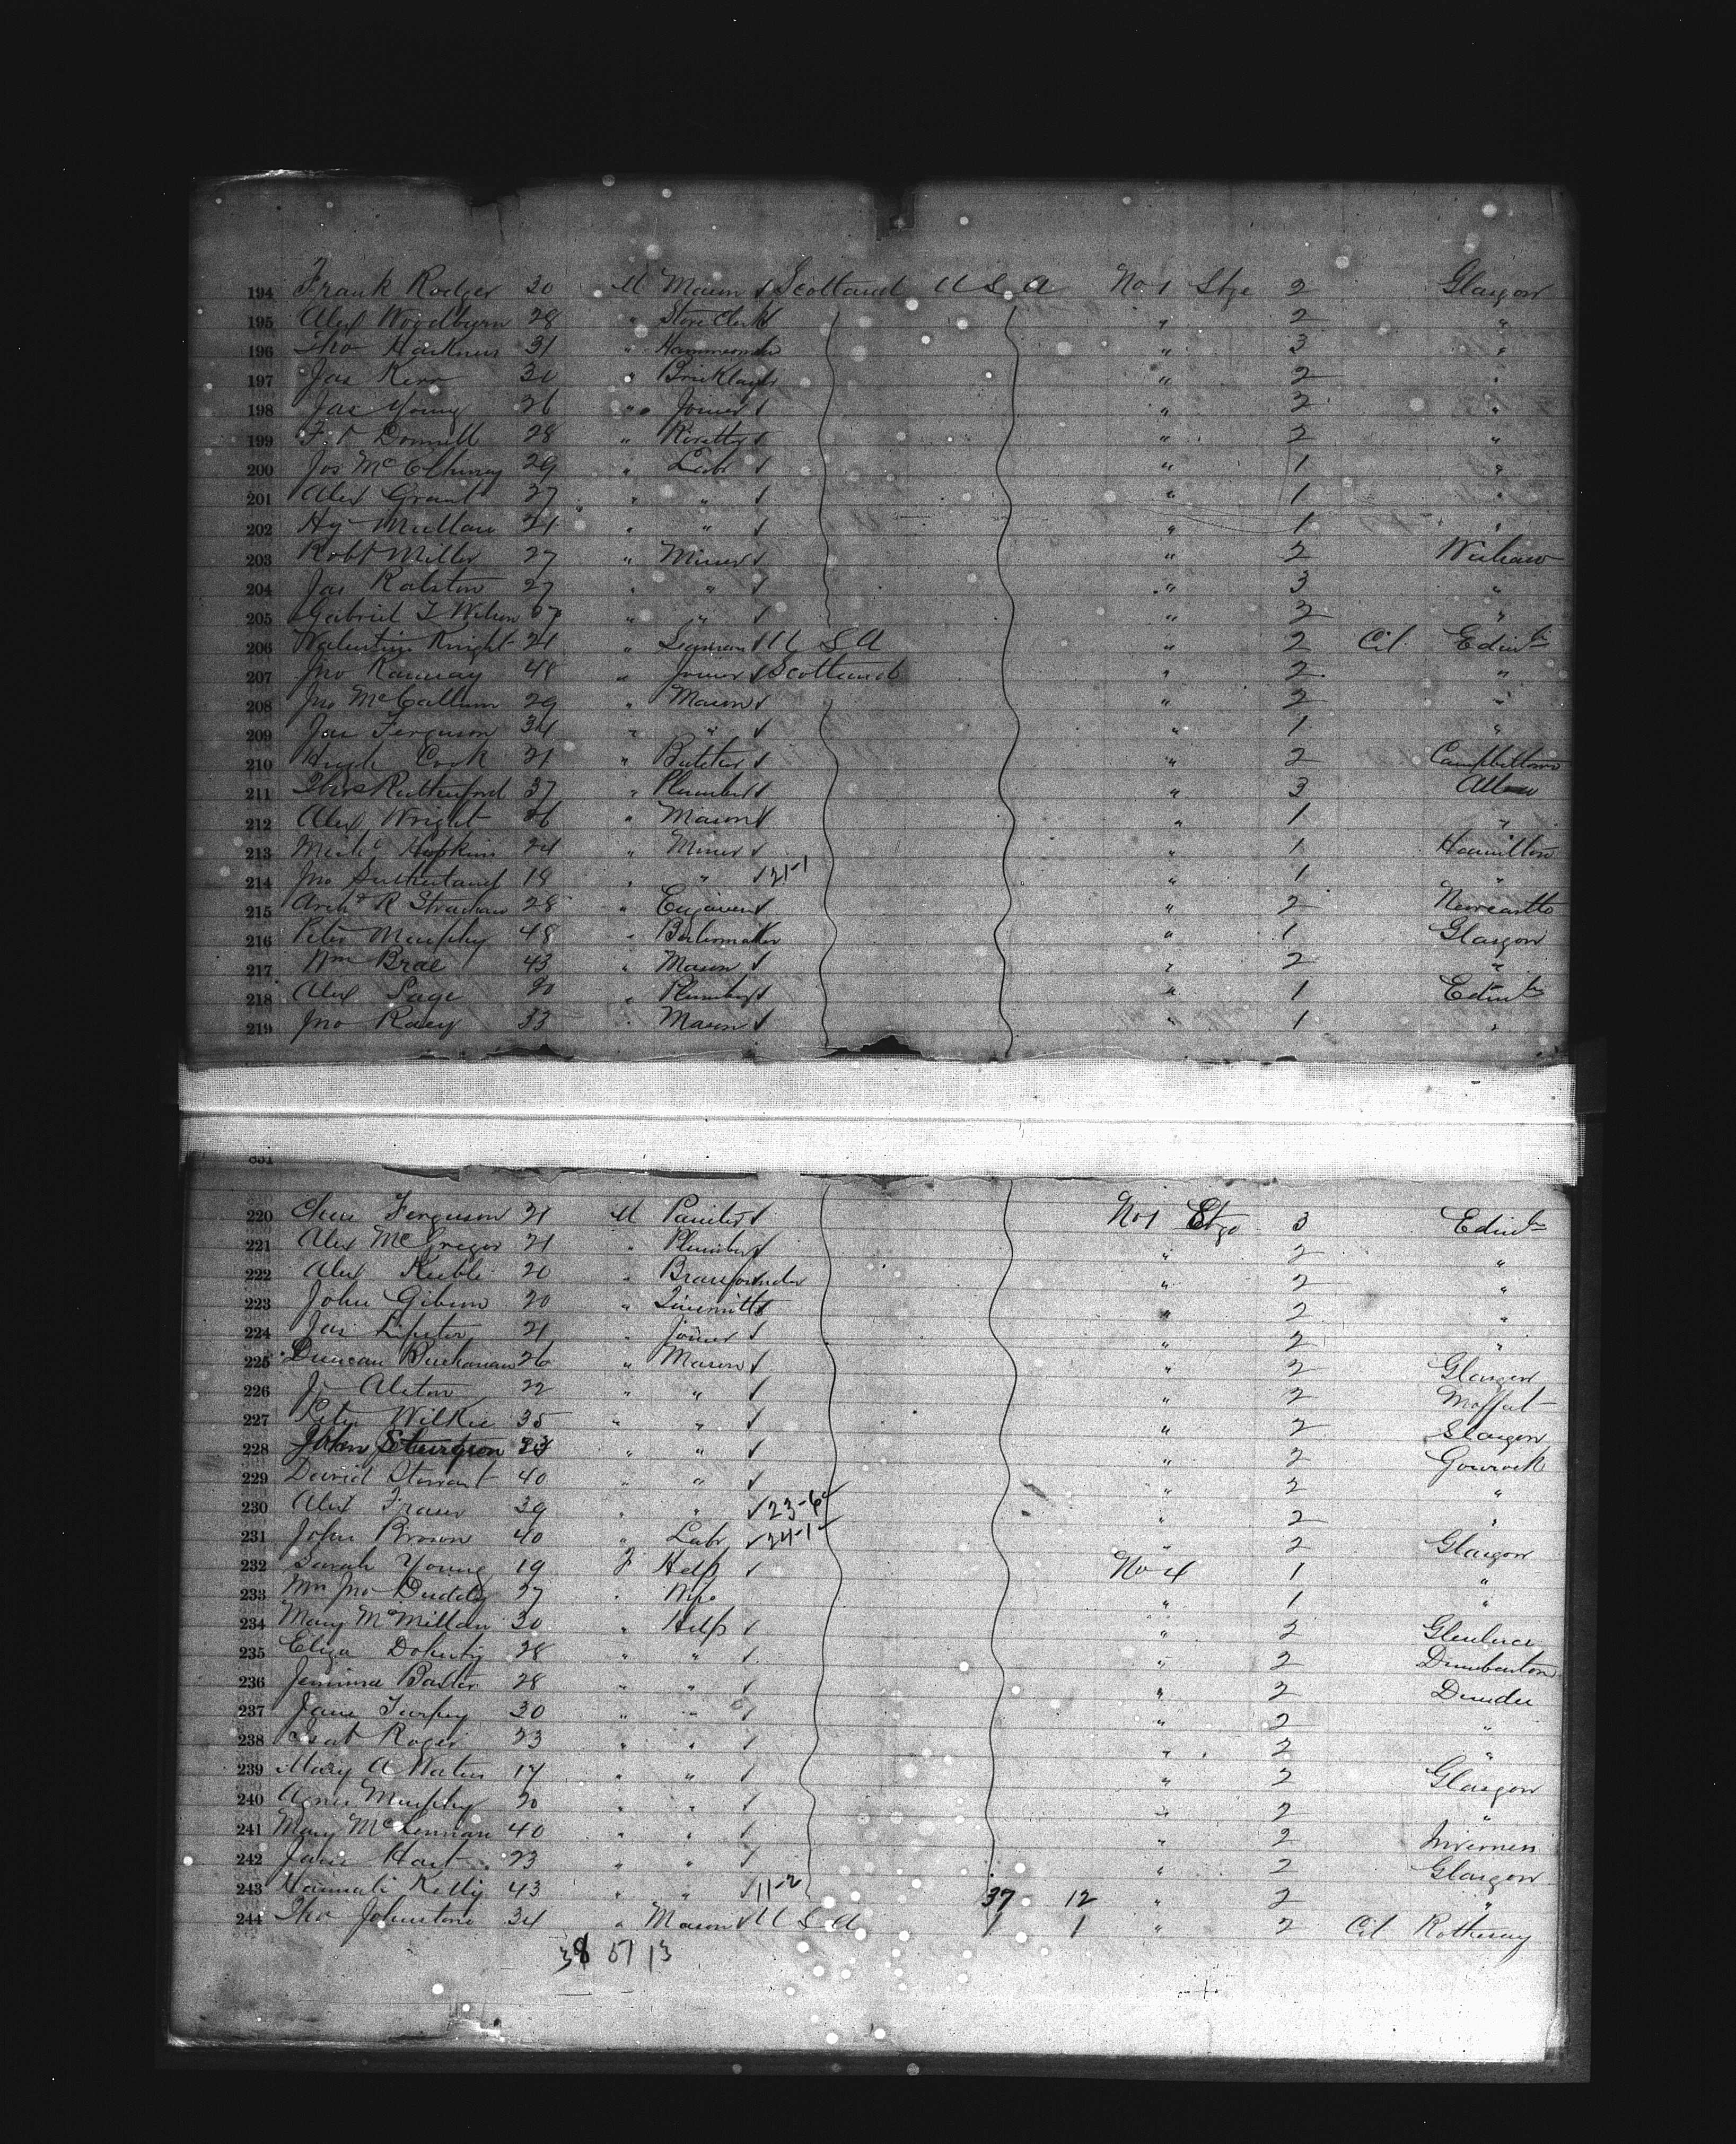 194 Frank Rodger 20 M Mason Scotland U S A No 1 Stge 2 Glasgow
195 Alex Woodbyrn 28 " Store Clerk " 2 "
196 Tho Harkness 31 " " 3 "
197 Jas Kerr 30 " Bricklayer " 2 "
198 Jas Young 26 " Joiner " 2 "
199 28 " " 2 "
200 Jos 29 " Labr " 1 "
201 Alex Grant 27 " " " 1 "
202 Hy 21 " " " 1 "
203 Robt Miller 27 " Miner " 2 Wishaw
204 Jas Ralston 27 " " " 3 "
205 Gabriel T Wilson " " " 2 "
206 Valentine Knight 21 " Seaman U S A " 2 Cit Edinb
207 Jno Ramsay 48 " Joiner Scotland " 2 "
208 Jno McCallum 29 " Mason " 2 "
209 Jas Ferguson 34 " " " 1 "
210 Hugh Cook 21 " Butcher " 2 Campbeltown
211 Thos Rutherford 37 " Plumber " 3
212 Alex Wright 26 " Mason " 1 "
213 Michl Hopkins 24 " Miner " 1 Hamilton
214 Jno Sutherland 18 " " 21-1 " 1 "
215 Archd R Strachan 28 " " 2 Newcastle
216 Peter Murphy 48 " Boilermaker " 1 Glasgow
217 Wm Brae 43 " Mason " 2 "
218 Alex 20 " Plumber " 1 Edinb
219 Jno 33 " Mason " 1 "
831
220 Ferguson 21 M Painter No 1 Stge 3 Edinb
221 Alex McGregor 21 " Plumber " 2 "
222 Alex Keeble 20 " Brassfounder " 2 "
223 John Gibson 20 " Tinsmith " 2 "
224 Jas 21 " Joiner " 2 "
225 Duncan Buchanan 26 " Mason " 2 Glasgow
226 J Alston 22 " " " 2 Moffat
227 Peter Wilkie 35 " " " 2 Glasgow
228 John Sturgeon 33 " " " 2 Gourock
229 David 40 " " " 2 "
230 Alex Fraser 39 " " 23-6 " 2 "
231 John Brown 40 " Labr 24-1 " 2 Glasgow
232 Sarah Young 19 F Help No 4 1 "
233 Mrs Jno 27 " Wife " 1 "
234 Mary McMillan 30 " Help " 2 Glenluce
235 Eliza Doherty 28 " " " 2 Dumbarton
236 Jemima Baxter 28 " " " 2 Dundee
237 Jane 30 " " " 2 "
238 Roger 23 " " " 2 "
239 Mary A Waters 17 " " " 2 Glasgow
240 Agnes Murphy 20 " " " 2 "
241 Mary McLennan 40 " " " 2 Inverness
242 Janie Hart 23 " " " 2 Glasgow
243 Hannah Kelly 43 " " 11-2 37 12 " 2 "
244 Tho Johnstone 34 " Mason U S A 1 1 " 2 Cit Rothesay
38 51 13